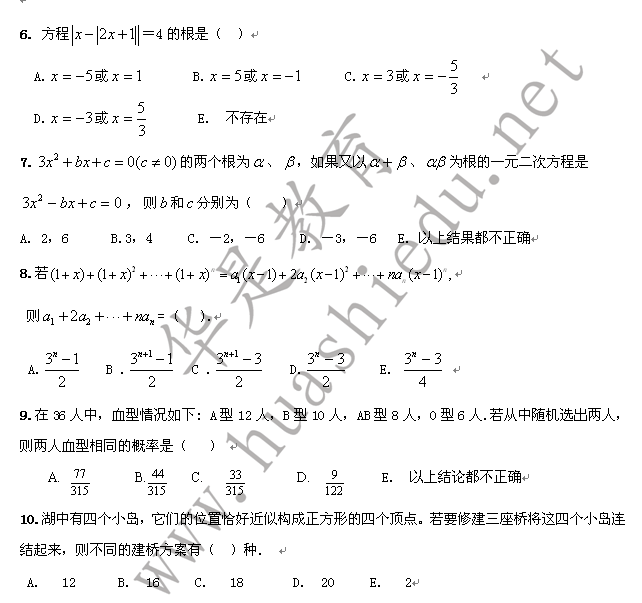 6. 方程|x−|2x+1||=4 的根是（ ）
A. x=−5或x=1 B. x=5或x=−1 C. x=3或x=−5/3
D. x=−3或x=5/3 E. 不存在
7. 3x²+bx+c=0(c≠0)的两个根为α、β，如果又以α+β、αβ为根的一元二次方程是
3x²−bx+c=0，则b和c分别为（ ）
A. 2，6 B.3，4 C. −2，−6 D. −3，−6 E. 以上结果都不正确
8.若(1+x)+(1+x)²+⋯+(1+x)ⁿ=a₁(x−1)+2a₂(x−1)²+⋯+naₙ(x−1)ⁿ,
则a₁+2a₂+⋯+naₙ=（ ）.
A. (3ⁿ−1)/2 B . (3ⁿ⁺¹−1)/2 C . (3ⁿ⁺¹−3)/2 D. (3ⁿ−3)/2 E. (3ⁿ−3)/4
9.在 36 人中，血型情况如下：A型 12 人，B型 10 人，AB型 8 人，O型 6 人.若从中随机选出两人，
则两人血型相同的概率是（ ）
A. 77/315 B. 44/315 C. 33/315 D. 9/122 E. 以上结论都不正确
10.湖中有四个小岛，它们的位置恰好近似构成正方形的四个顶点。若要修建三座桥将这四个小岛连
结起来，则不同的建桥方案有（ ）种.
A. 12 B. 16 C. 18 D. 20 E. 2
华是教育
www.huashiedu.net